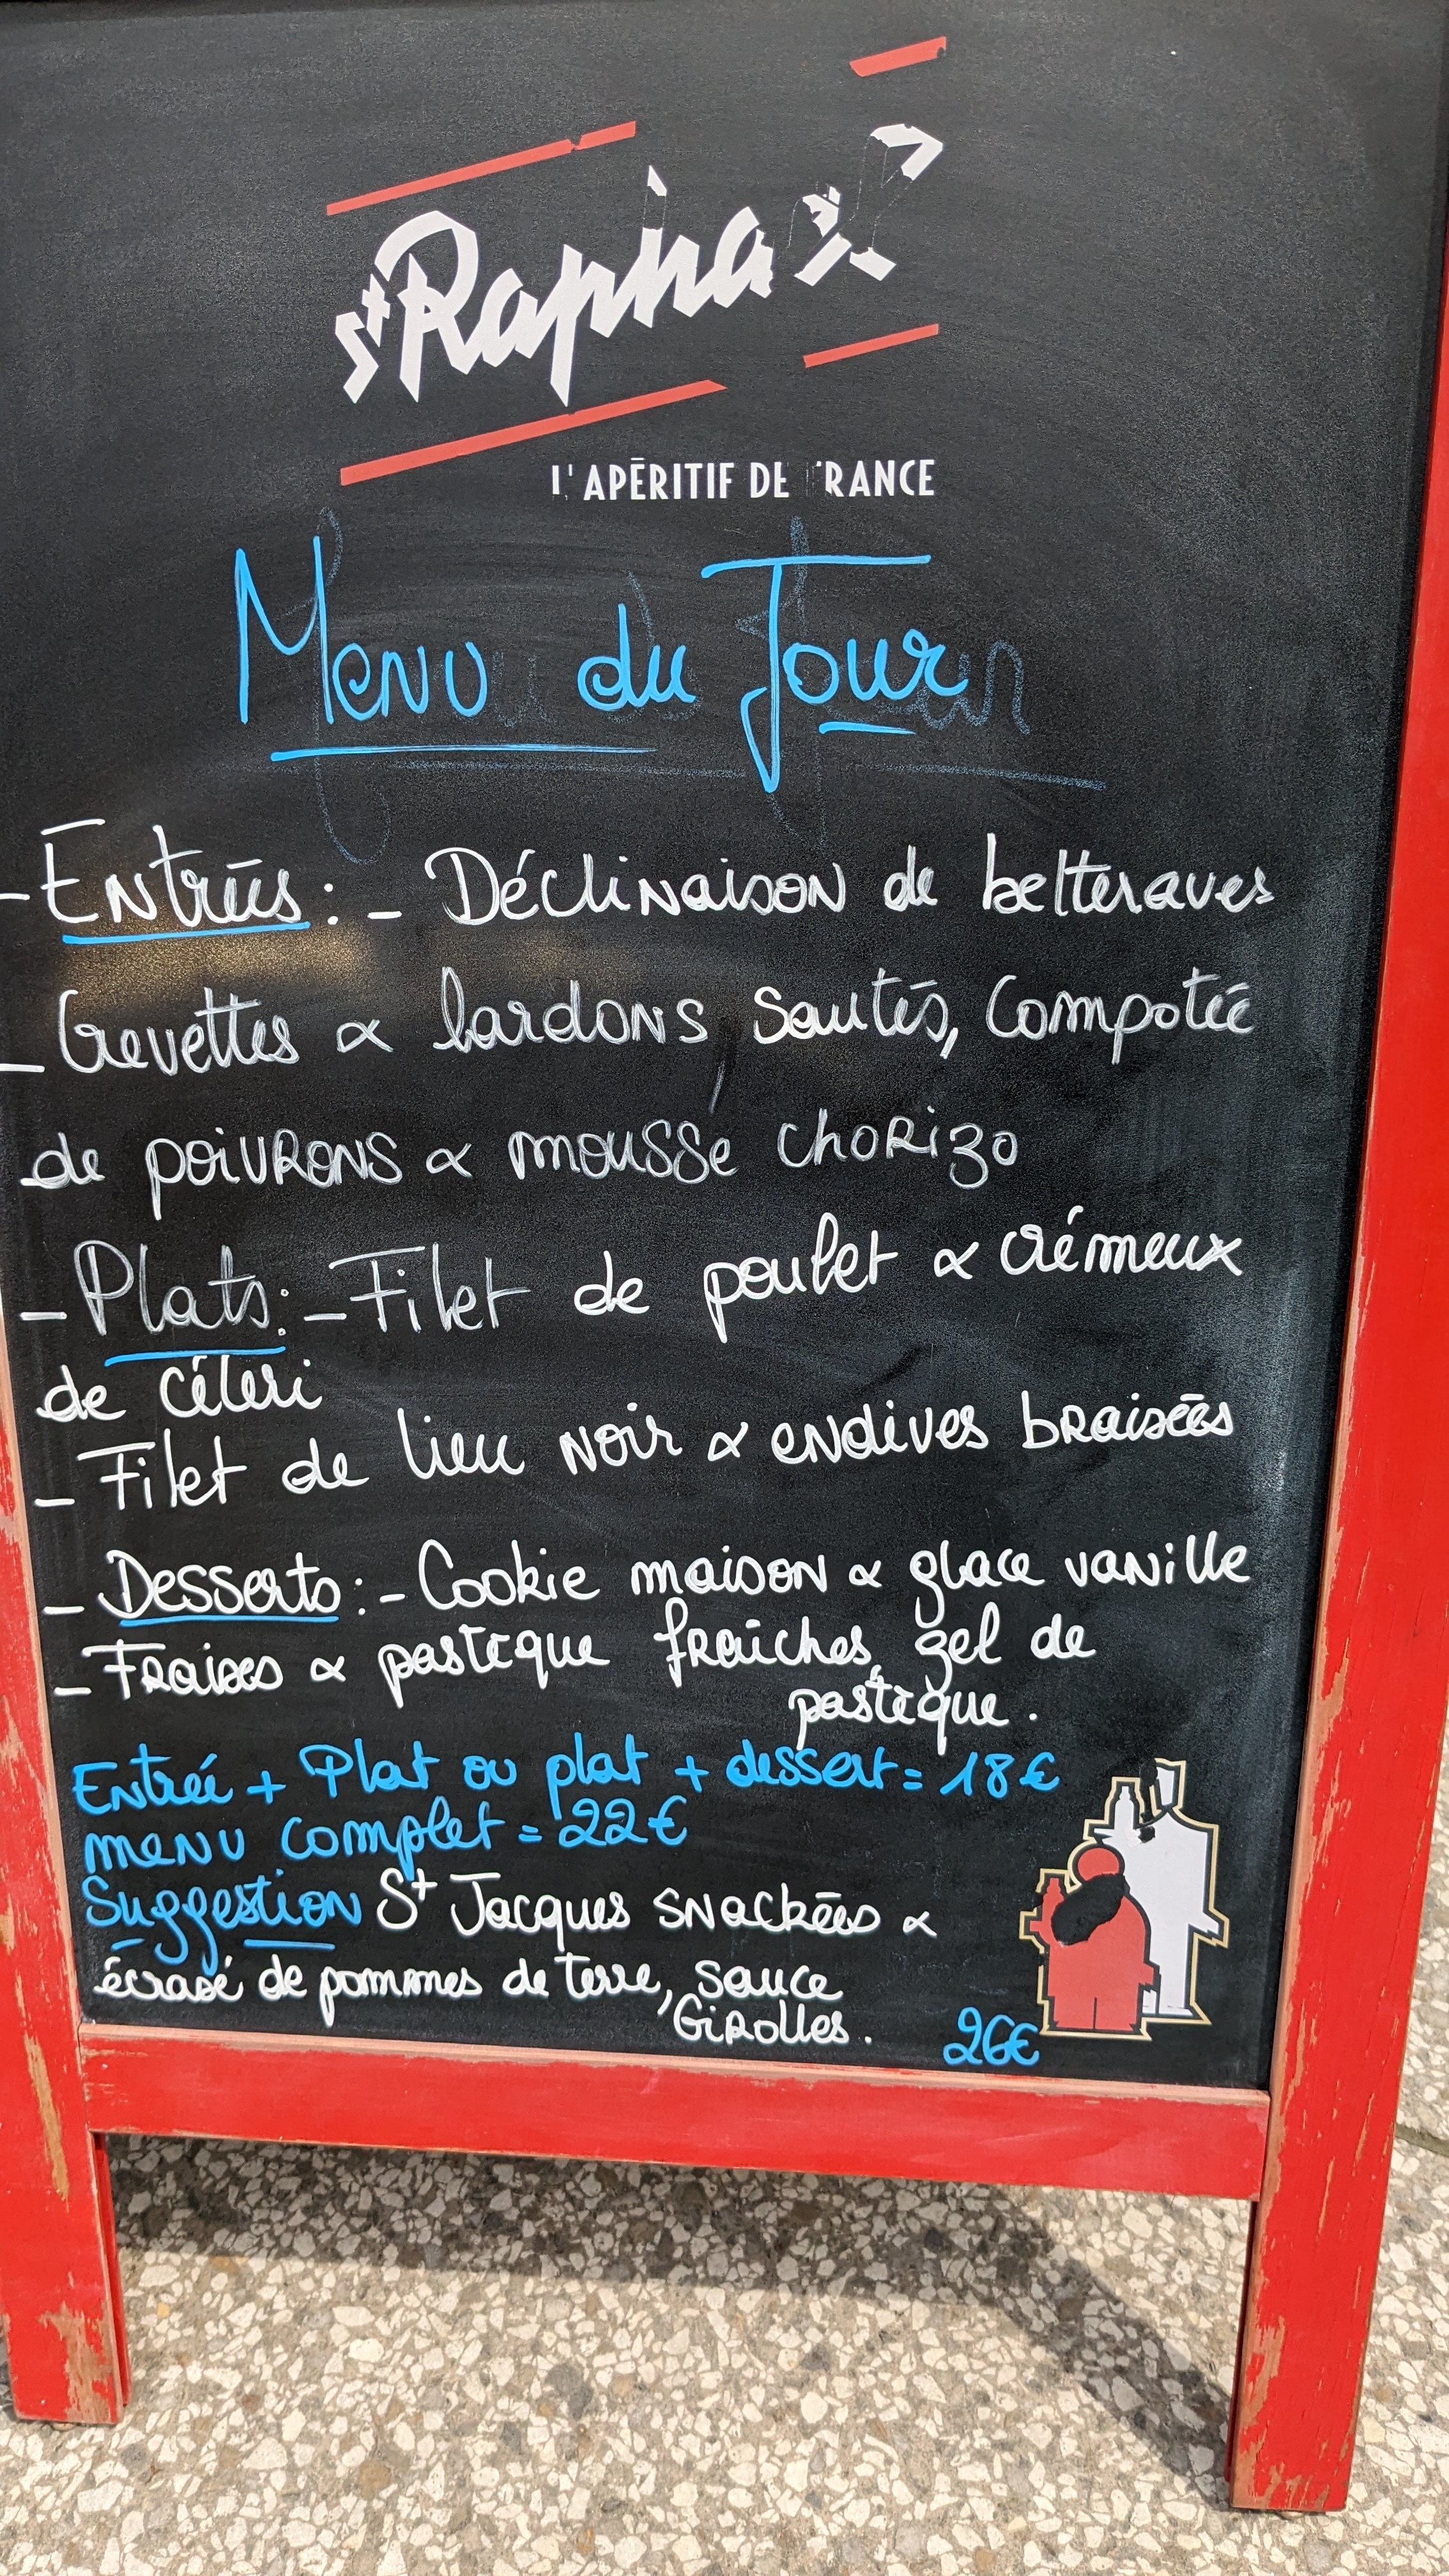 St Raphaël
L'APÉRITIF DE FRANCE
Menu du Jour
- Entrées : - Déclinaison de betteraves
- Crevettes & lardons sautés, Compotée
de poivrons & mousse chorizo
- Plats : - Filet de poulet & crémeux
de céleri
- Filet de lieu noir & endives braisées
- Desserts : - Cookie maison & glace vanille
- Fraises & pastèque fraîches, gel de
pastèque.
Entrée + Plat ou plat + dessert = 18€
menu complet = 22€
Suggestion St Jacques snackées &
écrasé de pommes de terre, sauce
Girolles. 26€